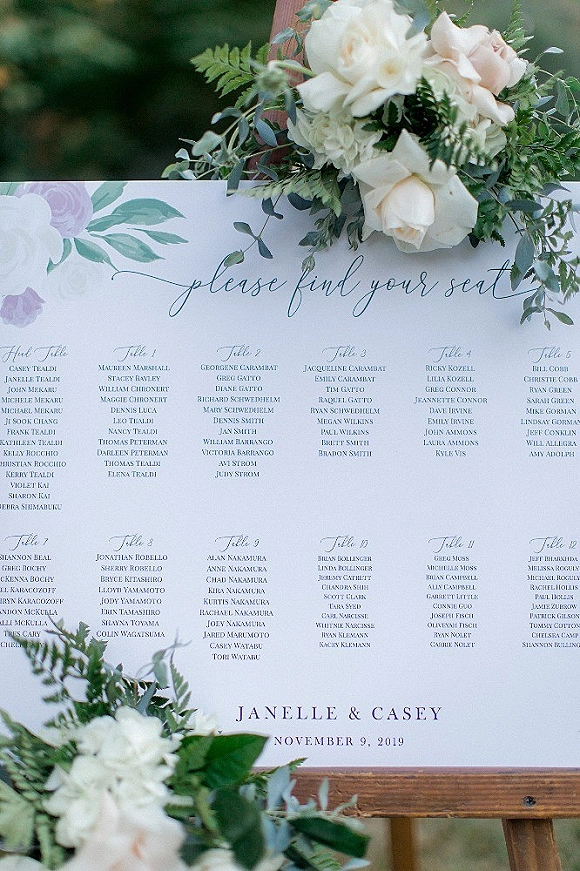 please find your seat
Head Table
Casey Tealdi
Janelle Tealdi
John Mekaru
Michele Mekaru
Michael Mekaru
Ji Sook Chang
Frank Tealdi
Kathleen Tealdi
Kelly Rocchio
Christian Rocchio
Kerry Tealdi
Violet Kai
Sharon Kai
Debra Shimabuku
Table 1
Maureen Marshall
Stacey Bayley
William Chronert
Maggie Chronert
Dennis Luca
Leo Tealdi
Nancy Tealdi
Thomas Peterman
Darleen Peterman
Thomas Tealdi
Elena Tealdi
Table 2
Georgene Carambat
Greg Gatto
Diane Gatto
Richard Schwedhelm
Mary Schwedhelm
Dennis Smith
Jan Smith
William Barrango
Victoria Barrango
Avi Strom
Judy Strom
Table 3
Jacqueline Carambat
Emily Carambat
Tim Gatto
Raquel Gatto
Ryan Schwedhelm
Megan Wilkins
Paul Wilkins
Brett Smith
Bradon Smith
Table 4
Ricky Kozell
Lilia Kozell
Greg Connor
Jeannette Connor
Dave Irvine
Emily Irvine
John Ammons
Laura Ammons
Kyle Vis
Table 5
Bill Cobb
Christie Cobb
Ryan Green
Sarah Green
Mike Gorman
Lindsay Gorman
Jeff Conklin
Will Allegra
Amy Adolph
Table 7
Shannon Beal
Greg Bochy
McKenna Bochy
Karacozoff
Karacozoff
McKulla
McKulla
Tres Cary
Table 8
Jonathan Robello
Sherry Robello
Bryce Kitashiro
Lloyd Yamamoto
Jody Yamamoto
Erin Tamashiro
Shayna Toyama
Colin Wagatsuma
Table 9
Alan Nakamura
Anne Nakamura
Chad Nakamura
Kira Nakamura
Kurtis Nakamura
Rachael Nakamura
Joey Nakamura
Jared Marumoto
Casey Watabu
Tori Watabu
Table 10
Brian Bollinger
Linda Bollinger
Jeremy Cathett
Chandra Shih
Scott Clark
Tara Syed
Carl Narcisse
Whitnie Narcisse
Ryan Klemann
Kacey Klemann
Table 11
Greg Moss
Michelle Moss
Brian Campsell
Ally Campsell
Garrett Little
Connie Guo
Joseph Fisch
Oliveyah Fisch
Ryan Nolet
Carrie Nolet
Table
Jeff Bharkhda
Melissa Roguly
Michael Roguly
Rachel Hollis
Paul Hollis
Jamie Zubrow
Patrick Gilson
Tommy Cotton
Chelsea Camp
Shannon Bulling
Janelle & Casey
November 9, 2019